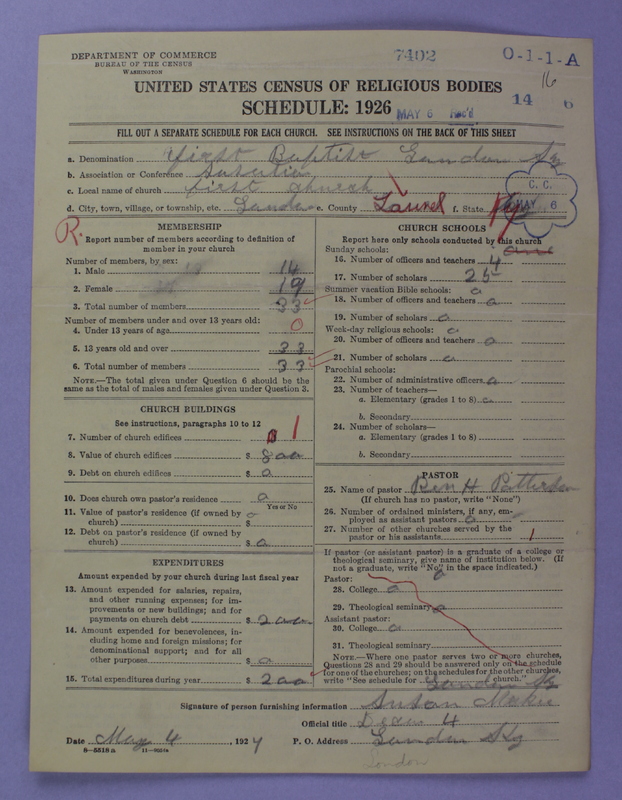 DEPARTMENT OF COMMERCE
BUREAU OF THE CENSUS
WASHINGTON
7402
O-1-1-A
16
UNITED STATES CENSUS OF RELIGIOUS BODIES
SCHEDULE: 1926
MAY 6 Rec'd
14 6
FILL OUT A SEPARATE SCHEDULE FOR EACH CHURCH. SEE INSTRUCTIONS ON THE BACK OF THIS SHEET
a. Denomination First Baptist
b. Association or Conference
c. Local name of church first church
d. City, town, village, or township, etc. e. County Laurel f. State Ky
C. C.
MAY 6
R.
MEMBERSHIP
Report number of members according to definition of member in your church
Number of members, by sex:
1. Male 14
2. Female 19
3. Total number of members 33
Number of members under and over 13 years old:
4. Under 13 years of age 0
5. 13 years old and over 33
6. Total number of members 33
NOTE.—The total given under Question 6 should be the same as the total of males and females given under Question 3.
CHURCH BUILDINGS
See instructions, paragraphs 10 to 12
7. Number of church edifices 1
8. Value of church edifices $ 800
9. Debt on church edifices $ 0
10. Does church own pastor's residence 0
Yes or No
11. Value of pastor's residence (if owned by church) $ 0
12. Debt on pastor's residence (if owned by church) $ 0
EXPENDITURES
Amount expended by your church during last fiscal year
13. Amount expended for salaries, repairs, and other running expenses; for improvements or new buildings; and for payments on church debt $
14. Amount expended for benevolences, including home and foreign missions; for denominational support; and for all other purposes $ 0
15. Total expenditures during year $ 200
CHURCH SCHOOLS
Report here only schools conducted by this church
Sunday schools:
16. Number of officers and teachers 4
17. Number of scholars 25
Summer vacation Bible schools: 0
18. Number of officers and teachers 0
19. Number of scholars 0
Week-day religious schools: 0
20. Number of officers and teachers 0
21. Number of scholars 0
Parochial schools:
22. Number of administrative officers 0
23. Number of teachers—
a. Elementary (grades 1 to 8) 0
b. Secondary
24. Number of scholars—
a. Elementary (grades 1 to 8)
b. Secondary
PASTOR
25. Name of pastor Ben H Patterson
(If church has no pastor, write "None")
26. Number of ordained ministers, if any, employed as assistant pastors 0
27. Number of other churches served by the pastor or his assistants 1
If pastor (or assistant pastor) is a graduate of a college or theological seminary, give name of institution below. (If not a graduate, write "No" in the space indicated.)
Pastor: 0
28. College 0
29. Theological seminary 0
Assistant pastor:
30. College 0
31. Theological seminary
NOTE.—Where one pastor serves two or more churches, Questions 28 and 29 should be answered only on the schedule for one of the churches; on the schedules for the other churches, write "See schedule for church."
Signature of person furnishing information Susan
Official title
Date May 4, 192
P. O. Address
London
8-5518 a